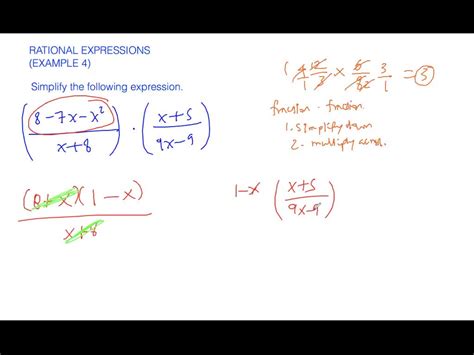 RATIONAL EXPRESSIONS
(EXAMPLE 4)
Simplify the following expression.
(8-7x-x²/x+8) · (x+5/9x-9)
(8+x)(1-x)/x+8
1-x (x+5/9x-9)
= 3
fraction · fraction
1. simplify down
2. multiply across